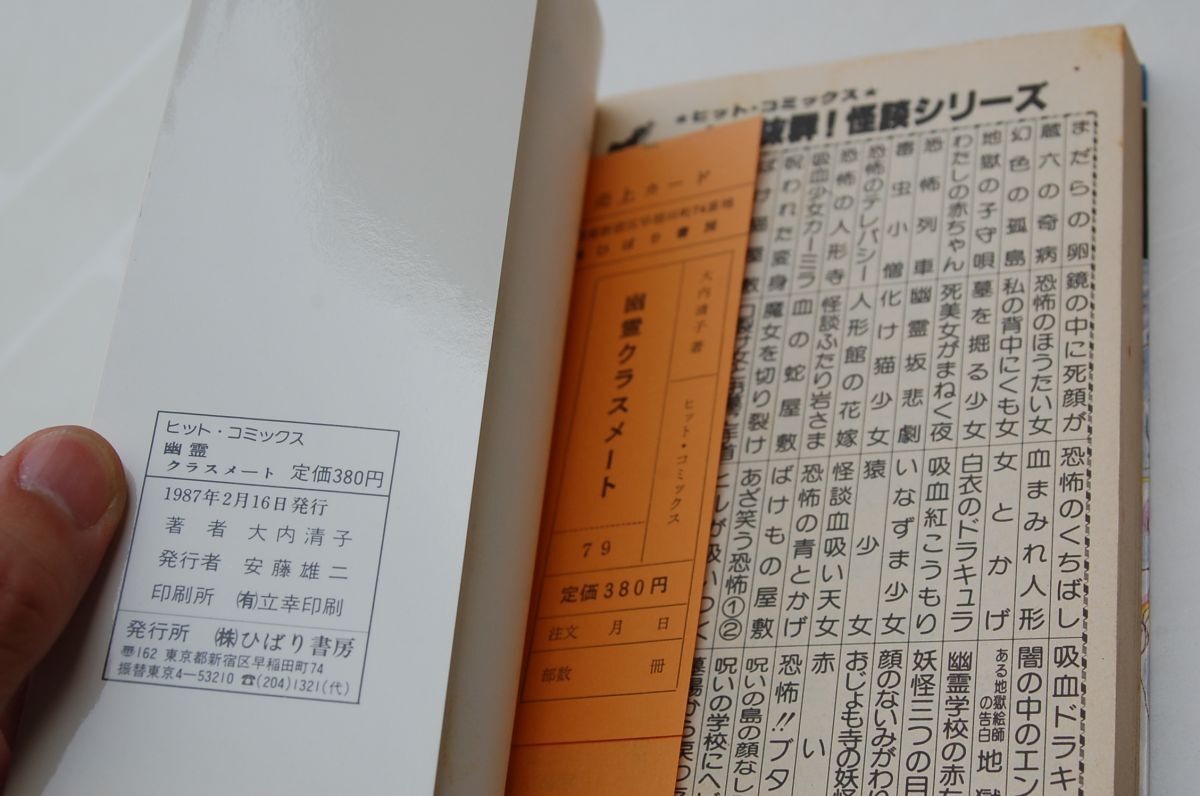 ヒット・コミックス
幽霊
クラスメート 定価380円
1987年2月16日発行
著者 大内清子
発行者 安藤雄二
印刷所 ㈲立幸印刷
発行所 ㈱ひばり書房
〠162 東京都新宿区早稲田町74
振替東京4-53210 ☎(204)1321(代)
売上カード
ひばり書房
大内清子著
ヒット・コミックス
幽霊クラスメート
79
定価380円
注文 月 日
部数 冊
★ヒット・コミックス★
抜群!怪談シリーズ
まだらの卵
蔵六の奇病
幻色の孤島
地獄の子守唄
わたしの赤ちゃん
恐怖列車
毒虫小僧
恐怖のテレパシー
恐怖の人形寺
吸血少女カーミラ
呪われた変身
鏡の中に死顔が
恐怖のほうたい女
私の背中にくも女
墓を掘る少女
死美女がまねく夜
幽霊坂悲劇
化け猫少女
人形館の花嫁
怪談ふたり岩さま
血の蛇屋敷
魔女を切り裂け
恐怖のくちばし
血まみれ人形
女とかげ
白衣のドラキュラ
吸血紅こうもり
いなずま少女
猿少女
怪談血吸い天女
恐怖の青とかげ
ばけもの屋敷
あざ笑う恐怖①②
吸血ドラキ
闇の中のエン
ある地獄絵師の告白 地獄
幽霊学校の赤
妖怪三つの目
顔のないみがわり
おじょも寺の妖怪
赤い
恐怖!!ブタ
呪いの島の顔なし
呪いの学校にヘび